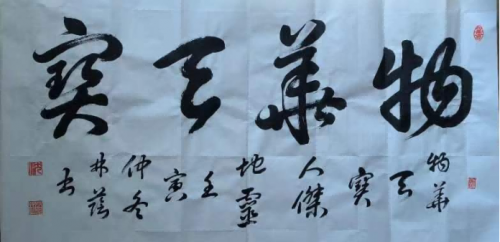 物華天寶
物華天寶人傑地靈壬寅仲冬林書